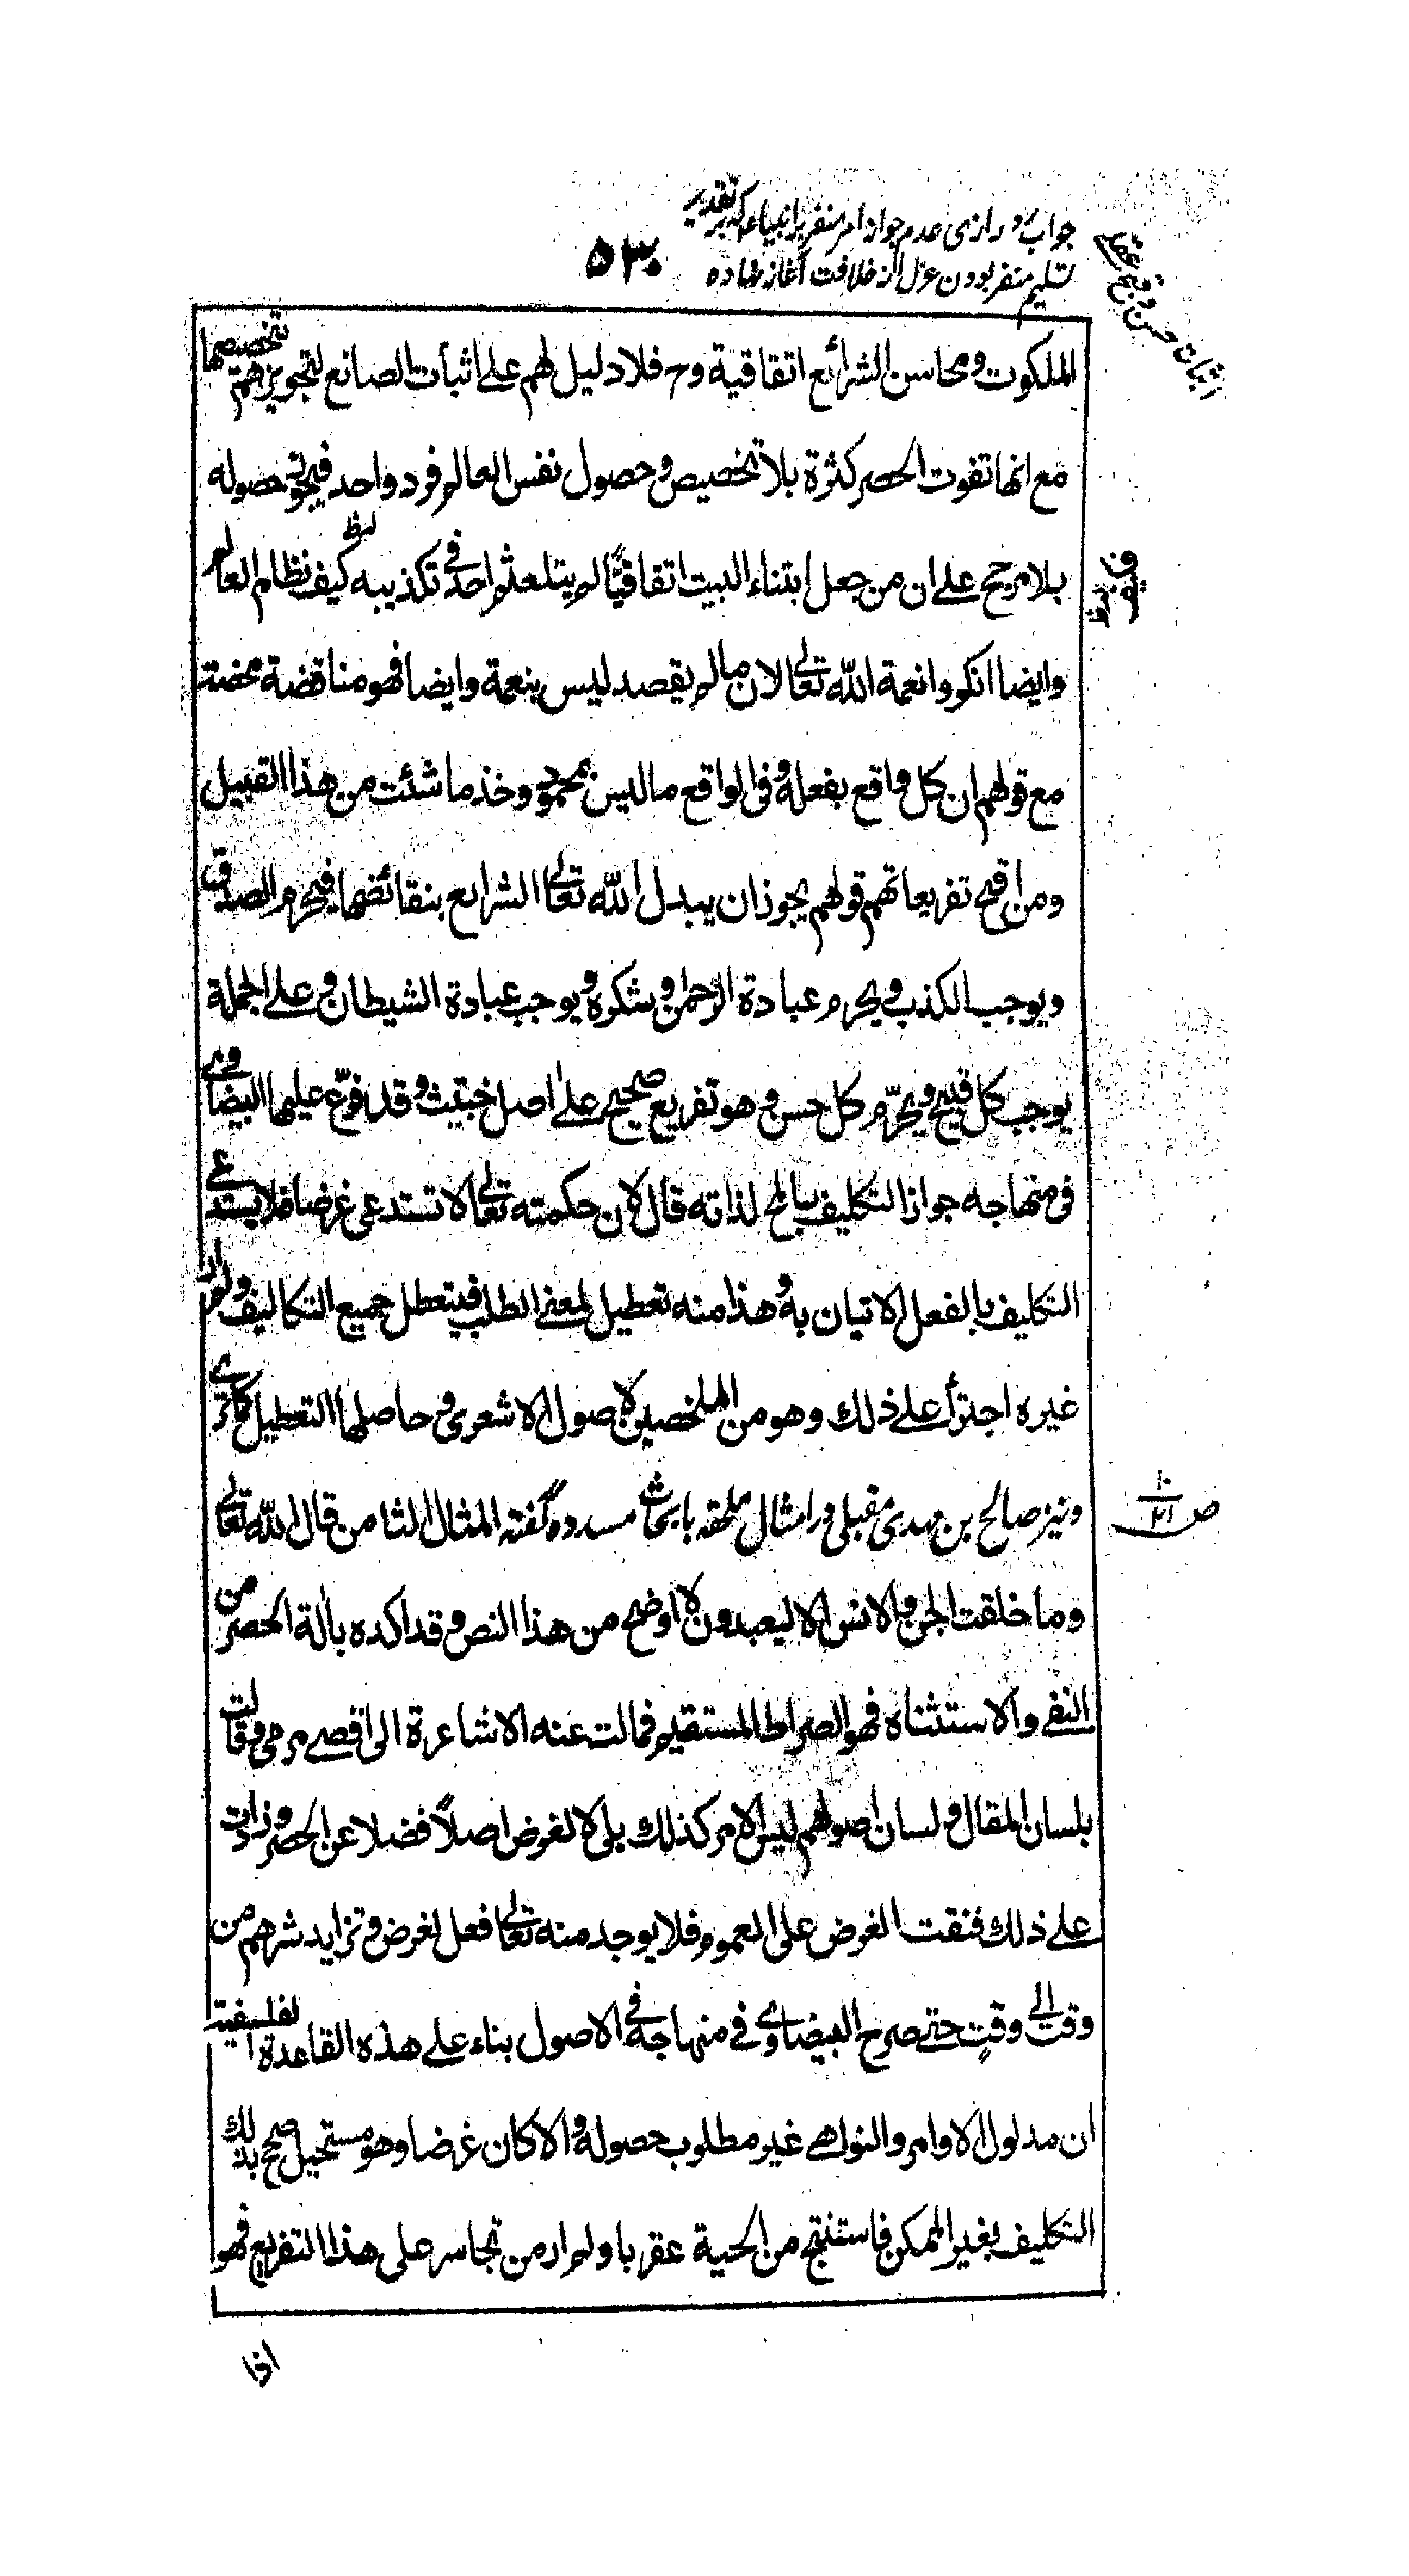 جواب رازی عدم جواز امر منفر بر انبیاء که بر تقدیر
تسلیم منفر بودن عزل از خلافت آغاز نهاده
۵۳۰
اثبات حسن و قبح عقلی
الملکوت ومحاسن الشرائع اتفاقیة وح فلا دلیل لهم علی اثبات الصانع لتجویزهم تخصیصها
مع انها تفوت الحصر کثرة بلا تخصیص وحصول نفس العالم فرد واحد فیجوز حصوله
بلا مرجح علی ان من جعل ابتناء البیت اتفاقیًا لم یتلعثم احد فی تکذیبه کیف نظام العالم
وایضا انکروا نعمة الله تعالی لان ما لم یقصد لیس بنعمة وایضا فهو مناقضة محضة
مع قولهم ان کل واقع بفعله وفی الواقع ما لیس بمحمود وخذ ما شئت من هذا القبیل
ومن اقبح تفریعاتهم قولهم یجوز ان یبدل الله تعالی الشرایع بنقائضها فیحرم الصدق
ویوجب الکذب ویحرم عبادة الرحمن وشکره ویوجب عبادة الشیطان وعلی الجملة
یوجب کل قبیح ویحرّم کل حسن وهو تفریع صحیح علی اصل خبیث وقد فرّع علیها البیضاوی
فی منهاجه جواز التکلیف بالمحال لذاته قال لان حکمته تعالی لا تستدعی غرضا فلا یستدعی
التکلیف بالفعل الاتیان به وهذا منه تعطیل لمعنی الطلب فیتعطل جمیع التکالیف ولم ار
غیره اجترأ علی ذلك وهو من الملخصین لاصول الاشعری وحاصلها التعطیل کما تری
ونیز صالح بن مهدی مقبلی در امثال ملحقه بابحاث مسدده گفته المثال الثامن قال الله تعالی
ص ۱۰/۲۱
وما خلقت الجن والانس الا لیعبدون لا اوضح من هذا النص وقد اکده بآلة الحصر من
النفی والاستثناء فهو الصراط المستقیم فمالت عنه الاشاعرة الی اقصی مرمی وقالت
بلسان المقال ولسان اصولهم لیس الامر کذلك بلی لا لغرض اصلاً فضلا عن الحصر وزادت
علی ذلك فنفت الغرض علی العموم فلا یوجد منه تعالی فعل لغرض وتزاید شرهم من
وقت الی وقتٍ حتی صرح البیضاوی فی منهاجه فی الاصول بناء علی هذه القاعدة الفلسفیة
ان مدلول الاوامر والنواهی غیر مطلوب حصوله والا کان غرضا وهو مستحیل صح بذلك
التکلیف بغیر الممکن فاستنتج من الحیة عقربا ولم ار من تجاسر علی هذا التفریع فهو
اذا